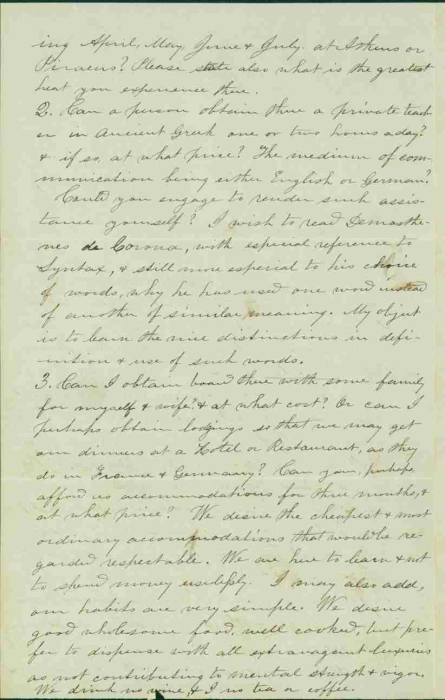 ing April, May, June & July. at Athens or
Piraeus? Please state also what is the greatest
heat you experience there.
2. Can a person obtain there a private teach
er in Ancient Greek one or two hours a day?
& if so, at what price? The medium of com-
munication being either English or German?
Could you engage to render such assis-
tance yourself? I wish to read Demosthe-
nes de Corona, with especial reference to
Syntax, & still more especial to his choice
of words, why he has used one word instead
of another of similar meaning. My object
is to learn the nice distinctions in defi-
nition & use of such words.
3. Can I obtain board there with some family
for myself & wife? & at what cost? Or can I
perhaps obtain lodgings so that we may get
our dinners at a Hotel or Restaurant, as they
do in France & Germany? Can you, perhaps
afford us accommodations for three months, &
at what price? We desire the cheapest & most
ordinary accommodations that would be re-
garded respectable. We are here to learn & not
to spend money uselessly. I may also add,
our habits are very simple. We desire
good wholesome food, well cooked, but pre-
fer to dispense with all extravagant luxuries
as not contributing to mental strength & vigor.
We drink no wine, & I no tea or coffee.